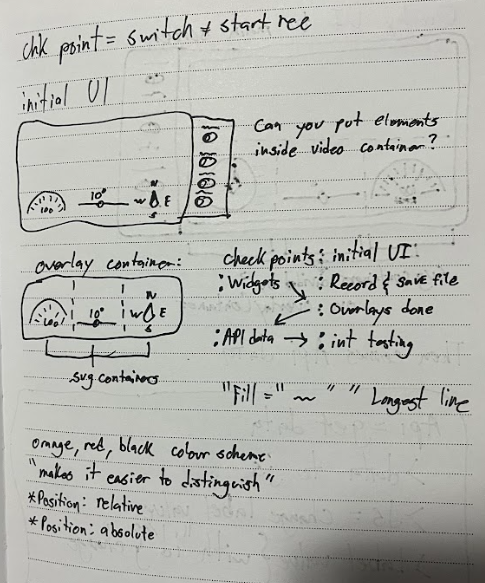 chk point = switch & start rec
initial UI
Can you put elements
inside video container?
100 10° N W E S
overlay container:
100 10° N W E S
svg containers
check points: initial UI:
: Widgets : Record & save file
: Overlays done
: API data → : int testing
"Fill =" ~ " " Longest line
orange, red, black colour scheme
"makes it easier to distinguish"
*Position: relative
*Position: absolute